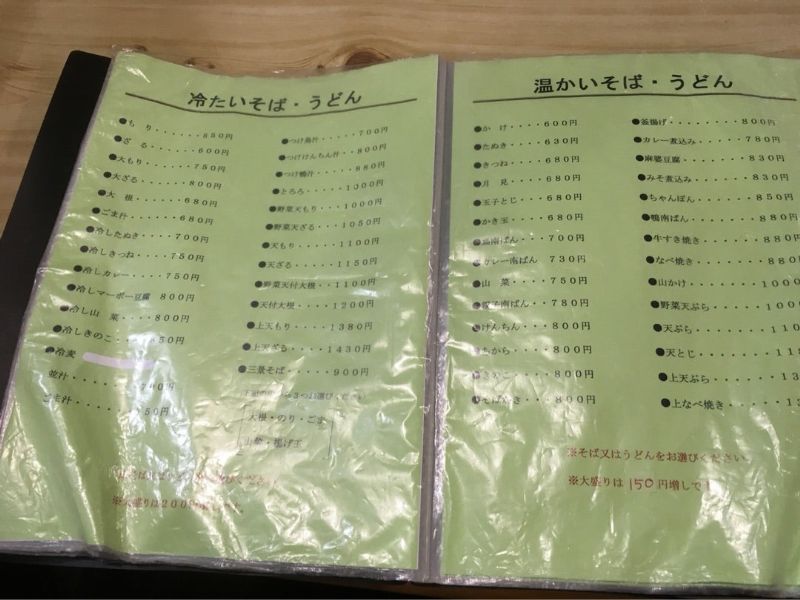 冷たいそば・うどん
●もり・・・・・・550円
●ざる・・・・・・600円
●大もり・・・・・750円
●大ざる・・・・・800円
●大　根・・・・・680円
●ごま汁・・・・・680円
●冷したぬき・・・700円
●冷しきつね・・・750円
●冷しカレー・・・・750円
●冷しマーボー豆腐 800円
●冷し山　菜・・・・800円
●冷しきのこ・・・・850円
●冷麦
●つけ鳥汁・・・・・700円
●つけけんちん汁・・800円
●つけ鴨汁・・・・・880円
●とろろ・・・・・1000円
●野菜天もり・・・・1000円
●野菜天ざる・・・・1050円
●天もり・・・・・・1100円
●天ざる・・・・・・1150円
●野菜天付大根・・・1100円
●天付大根・・・・・1200円
●上天もり・・・・・1380円
●上天ざる・・・・・1430円
●三景そば・・・・・900円
大根・のり・ごま
山菜・揚げ玉
※大盛りは200円増しです
温かいそば・うどん
●か　け・・・・600円
●たぬき・・・・630円
●きつね・・・・680円
●月　見・・・・680円
●玉子とじ・・・680円
●かき玉・・・・680円
南ばん・・・700円
●カレー南ばん　730円
●山　菜・・・・750円
南ばん・・・780円
●けんちん・・・800円
●ちから・・・・800円
・・・・800円
・・・800円
●釜揚げ・・・・・・・・800円
●カレー煮込み・・・・・780円
●麻婆豆腐・・・・・・・830円
●みそ煮込み・・・・・・830円
●ちゃんぽん・・・・・・850円
●鴨南ばん・・・・・・・880円
●牛すき焼き・・・・・・880
●なべ焼き・・・・・・・880
●山かけ・・・・・・・・1000
●野菜天ぷら・・・・・・
●天ぷら・・・・・・・・
●天とじ・・・・・・・・
●上天ぷら・・・・・・・
●上なべ焼き・・・・・・
※そば又はうどんをお選びください
※大盛りは150円増しです